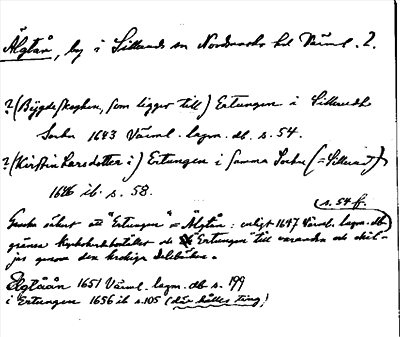 Älgtån, by i Sillerud sn Nordmarks hd Värml. 2.
?(Bÿgde/skoghen, som ligger till) Ertungen i Sillerudh
Sochn 1643 Värml. lagm. db. s. 54.
?(Kirstin Larsdotter i) Ertungen i samma Sochn (=Sillerud)
1646 ib. s. 58.
s. 54 ff.
Ganska säkert att "Ertungen" = Älgtån: enligt 1647 Värml. lagm. db
gränsa Kyrkoherdebostället och Ertungen till varandra och skil-
jas genom den
Elgtåån 1651 Värml. lagm. db s. 199
i Ertungen 1656 ib s. 105 (där hålles ting)